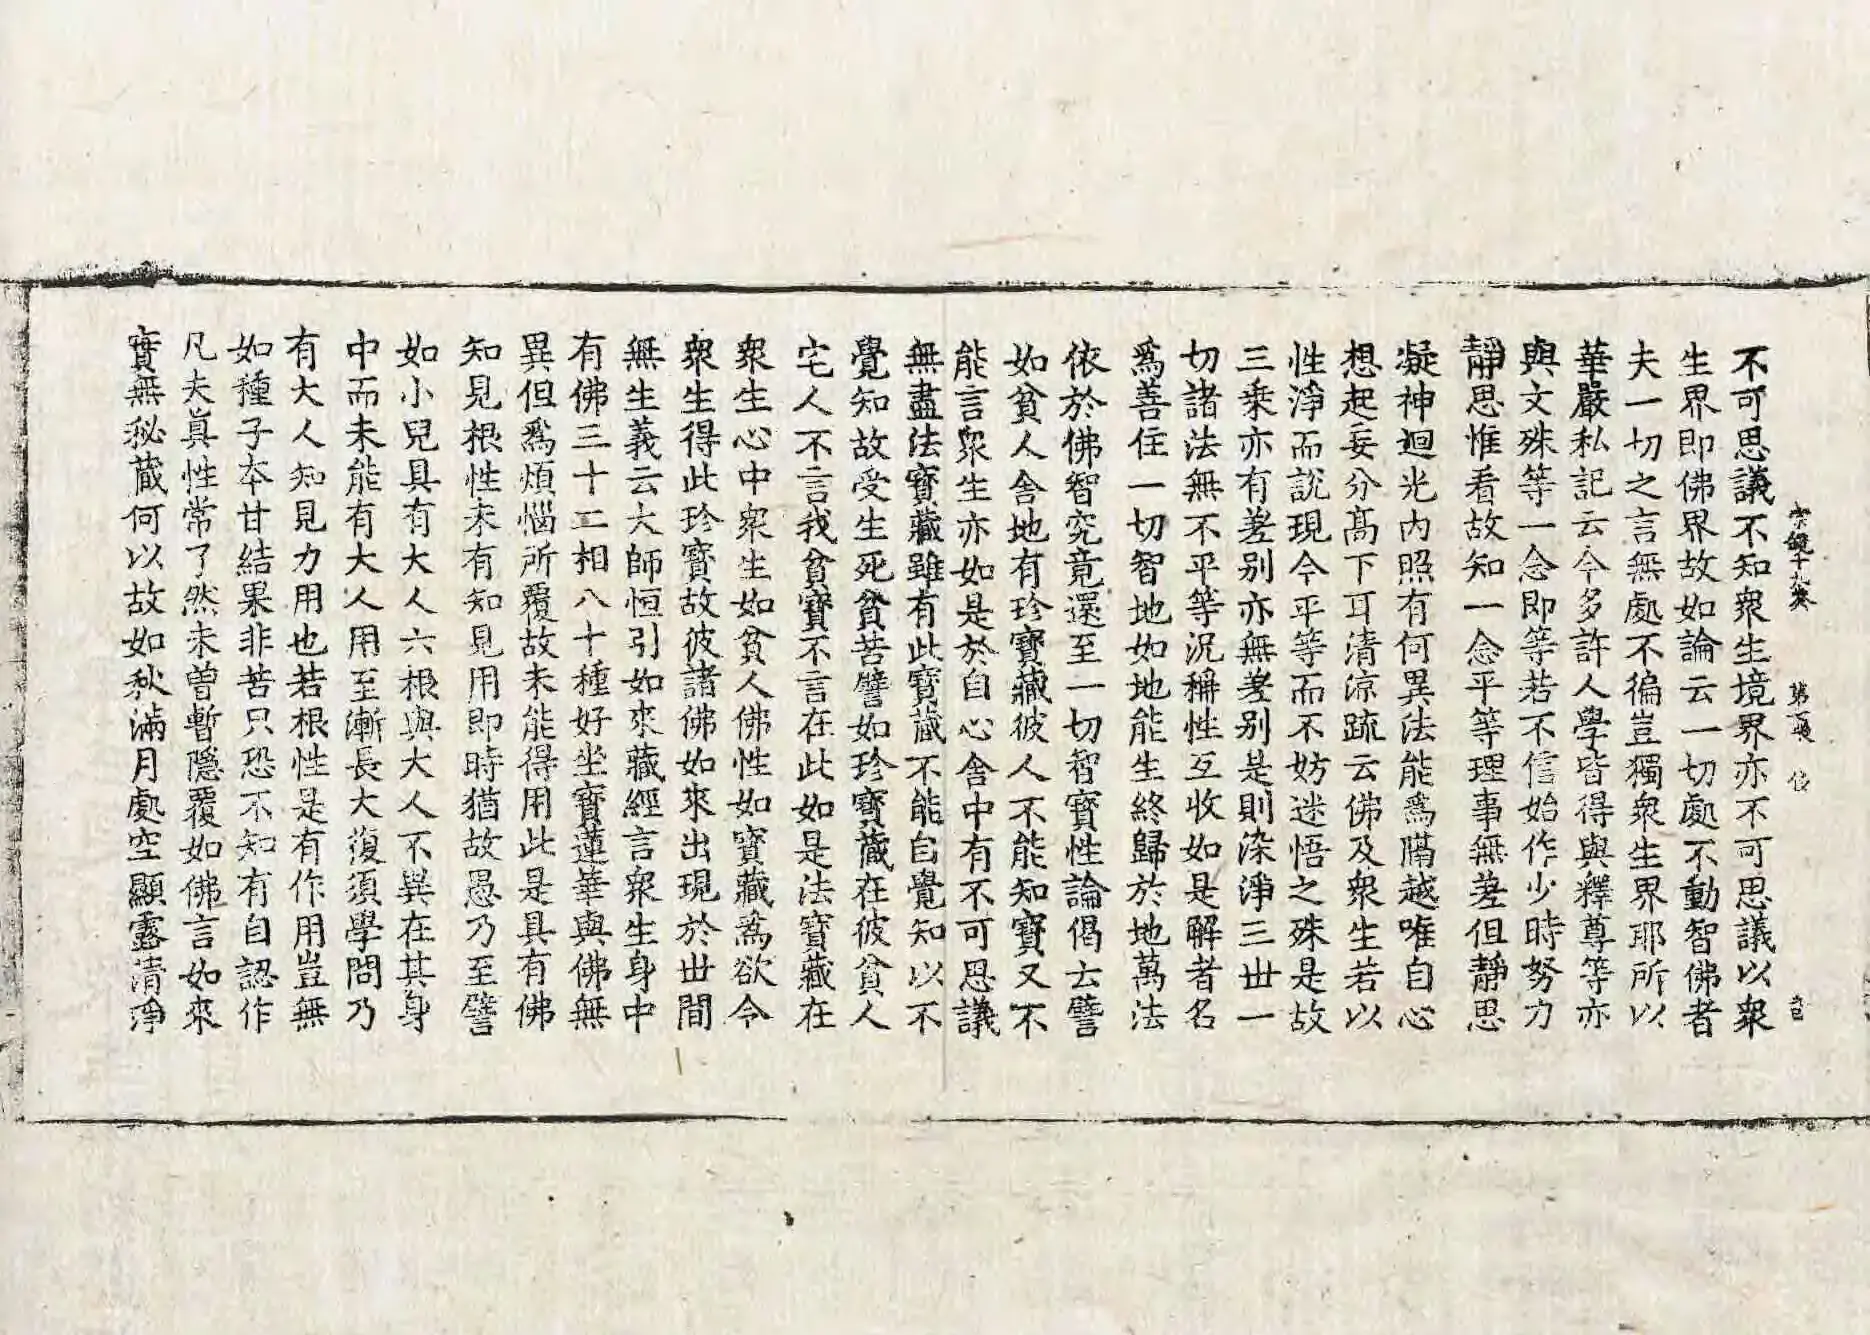 宗鏡十九卷 第二張 俊
不可思議不知衆生境界亦不可思議以衆
生界即佛界故如論云一切處不動智佛者
夫一切之言無處不徧豈獨衆生界耶所以
華嚴私記云今多許人學皆得與釋尊等亦
與文殊等一念即等若不信始作少時努力
靜思惟看故知一念平等理事無差但靜思
凝神迴光內照有何異法能爲隔越唯自心
想起妄分髙下耳清涼䟽云佛及衆生若以
性淨而說現今平等而不妨迷悟之殊是故
三乘亦有差别亦無差别是則染淨三世一
切諸法無不平等況稱性互收如是解者名
爲善住一切智地如地能生終歸於地萬法
依於佛智究竟還至一切智寶性論偈云譬
如貧人舍地有珍寶藏彼人不能知寶又不
能言衆生亦如是於自心舍中有不可思議
無盡法寶藏雖有此寶藏不能自覺知以不
覺知故受生死貧苦譬如珍寶藏在彼貧人
宅人不言我貧寶不言在此如是法寶藏在
衆生心中衆生如貧人佛性如寶藏爲欲令
衆生得此珍寶故彼諸佛如來出現於世間
無生義云大師恒引如來藏經言衆生身中
有佛三十二相八十種好坐寶蓮華與佛無
異但爲煩惱所覆故未能得用此是具有佛
知見根性未有知見用即時猶故愚乃至譬
如小兒具有大人六根與大人不異在其身
中而未能有大人用至漸長大復須學問乃
有大人知見力用也若根性是有作用豈無
如種子本甘結果非苦只恐不知有自認作
凡夫真性常了然未曾暫隱覆如佛言如來
實無秘藏何以故如秋滿月處空顯露清淨